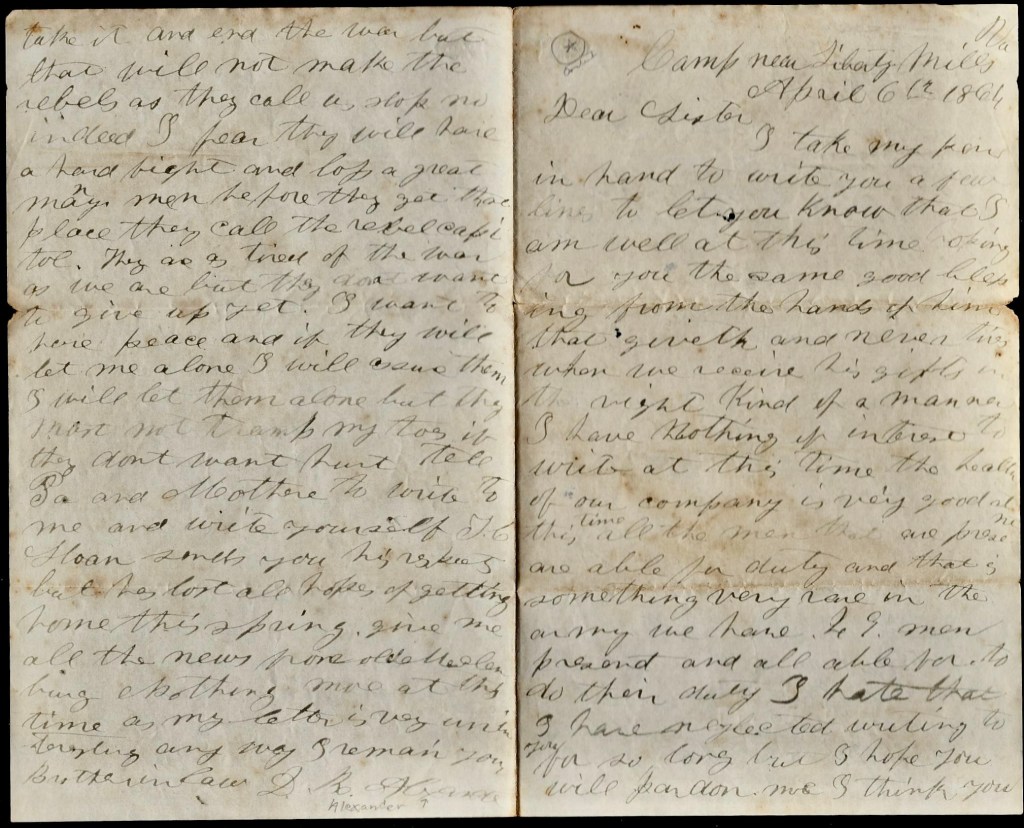 Va
Camp near Liberty Mills
April 6th 1864
Dear Sister
I take my pen
in hand to write you a few
lines to let you know that I
am well at this time hoping
for you the same good bless
ing from the hands of him
that giveth and never
when we receive his gifts in
the right kind of a manner
I have Nothing of interest to
write at this time the health
of our company is very good at
this time all the men that are present
are able for duty and that is
something very rare in the
army we have men
present and all able for to
do their duty I hate that
I have neglected writing to
you for so long but I hope you
will pardon me I think you
take it and end the war but
that will not make the
rebels as they call us stop no
indeed I fear they will have
a hard fight and loss a great
many men before they get that
place they call the rebel capi
tol. They are as tired of the war
as we are but they dont want
to give up yet. I want to
have peace and if they will
let me alone I will them
I will let them alone but they
must not tramp my toes if
they dont want hurt tell
Pa and Mothere to write to
me and write yourself
Sloan sends you his respects
but has lost all hopes of getting
home this spring. give me
all the news from old Mecklen
burg Nothing more at this
time as my letter is very unin
teresting any way I remain your
Brother in law D. R.
Alexander ?